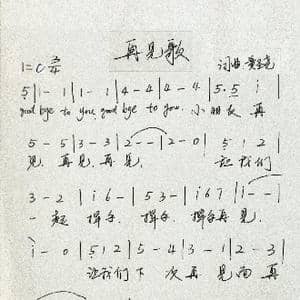 再见歌
1=C 3/4 词曲
5 | 1 - 1 | 1 - 1 | 4 - 4 | 4 - 4 | 5 · 5 i |
good bye to you, good bye to you. 小朋友 再
5 - 5 | 3 - 3 | 2 - - | 2 - 0 | 5 1 2 |
见 再见 再见. 让我们
3 - 2 | i 6 - | 5 3 - | i 6 7 | i - - |
一起 挥手. 挥手. 挥手再见.
i - 0 | 5 1 2 | 5 - 4 | 3 - 1 | 2 - 3 |
让我们下 次再见面再